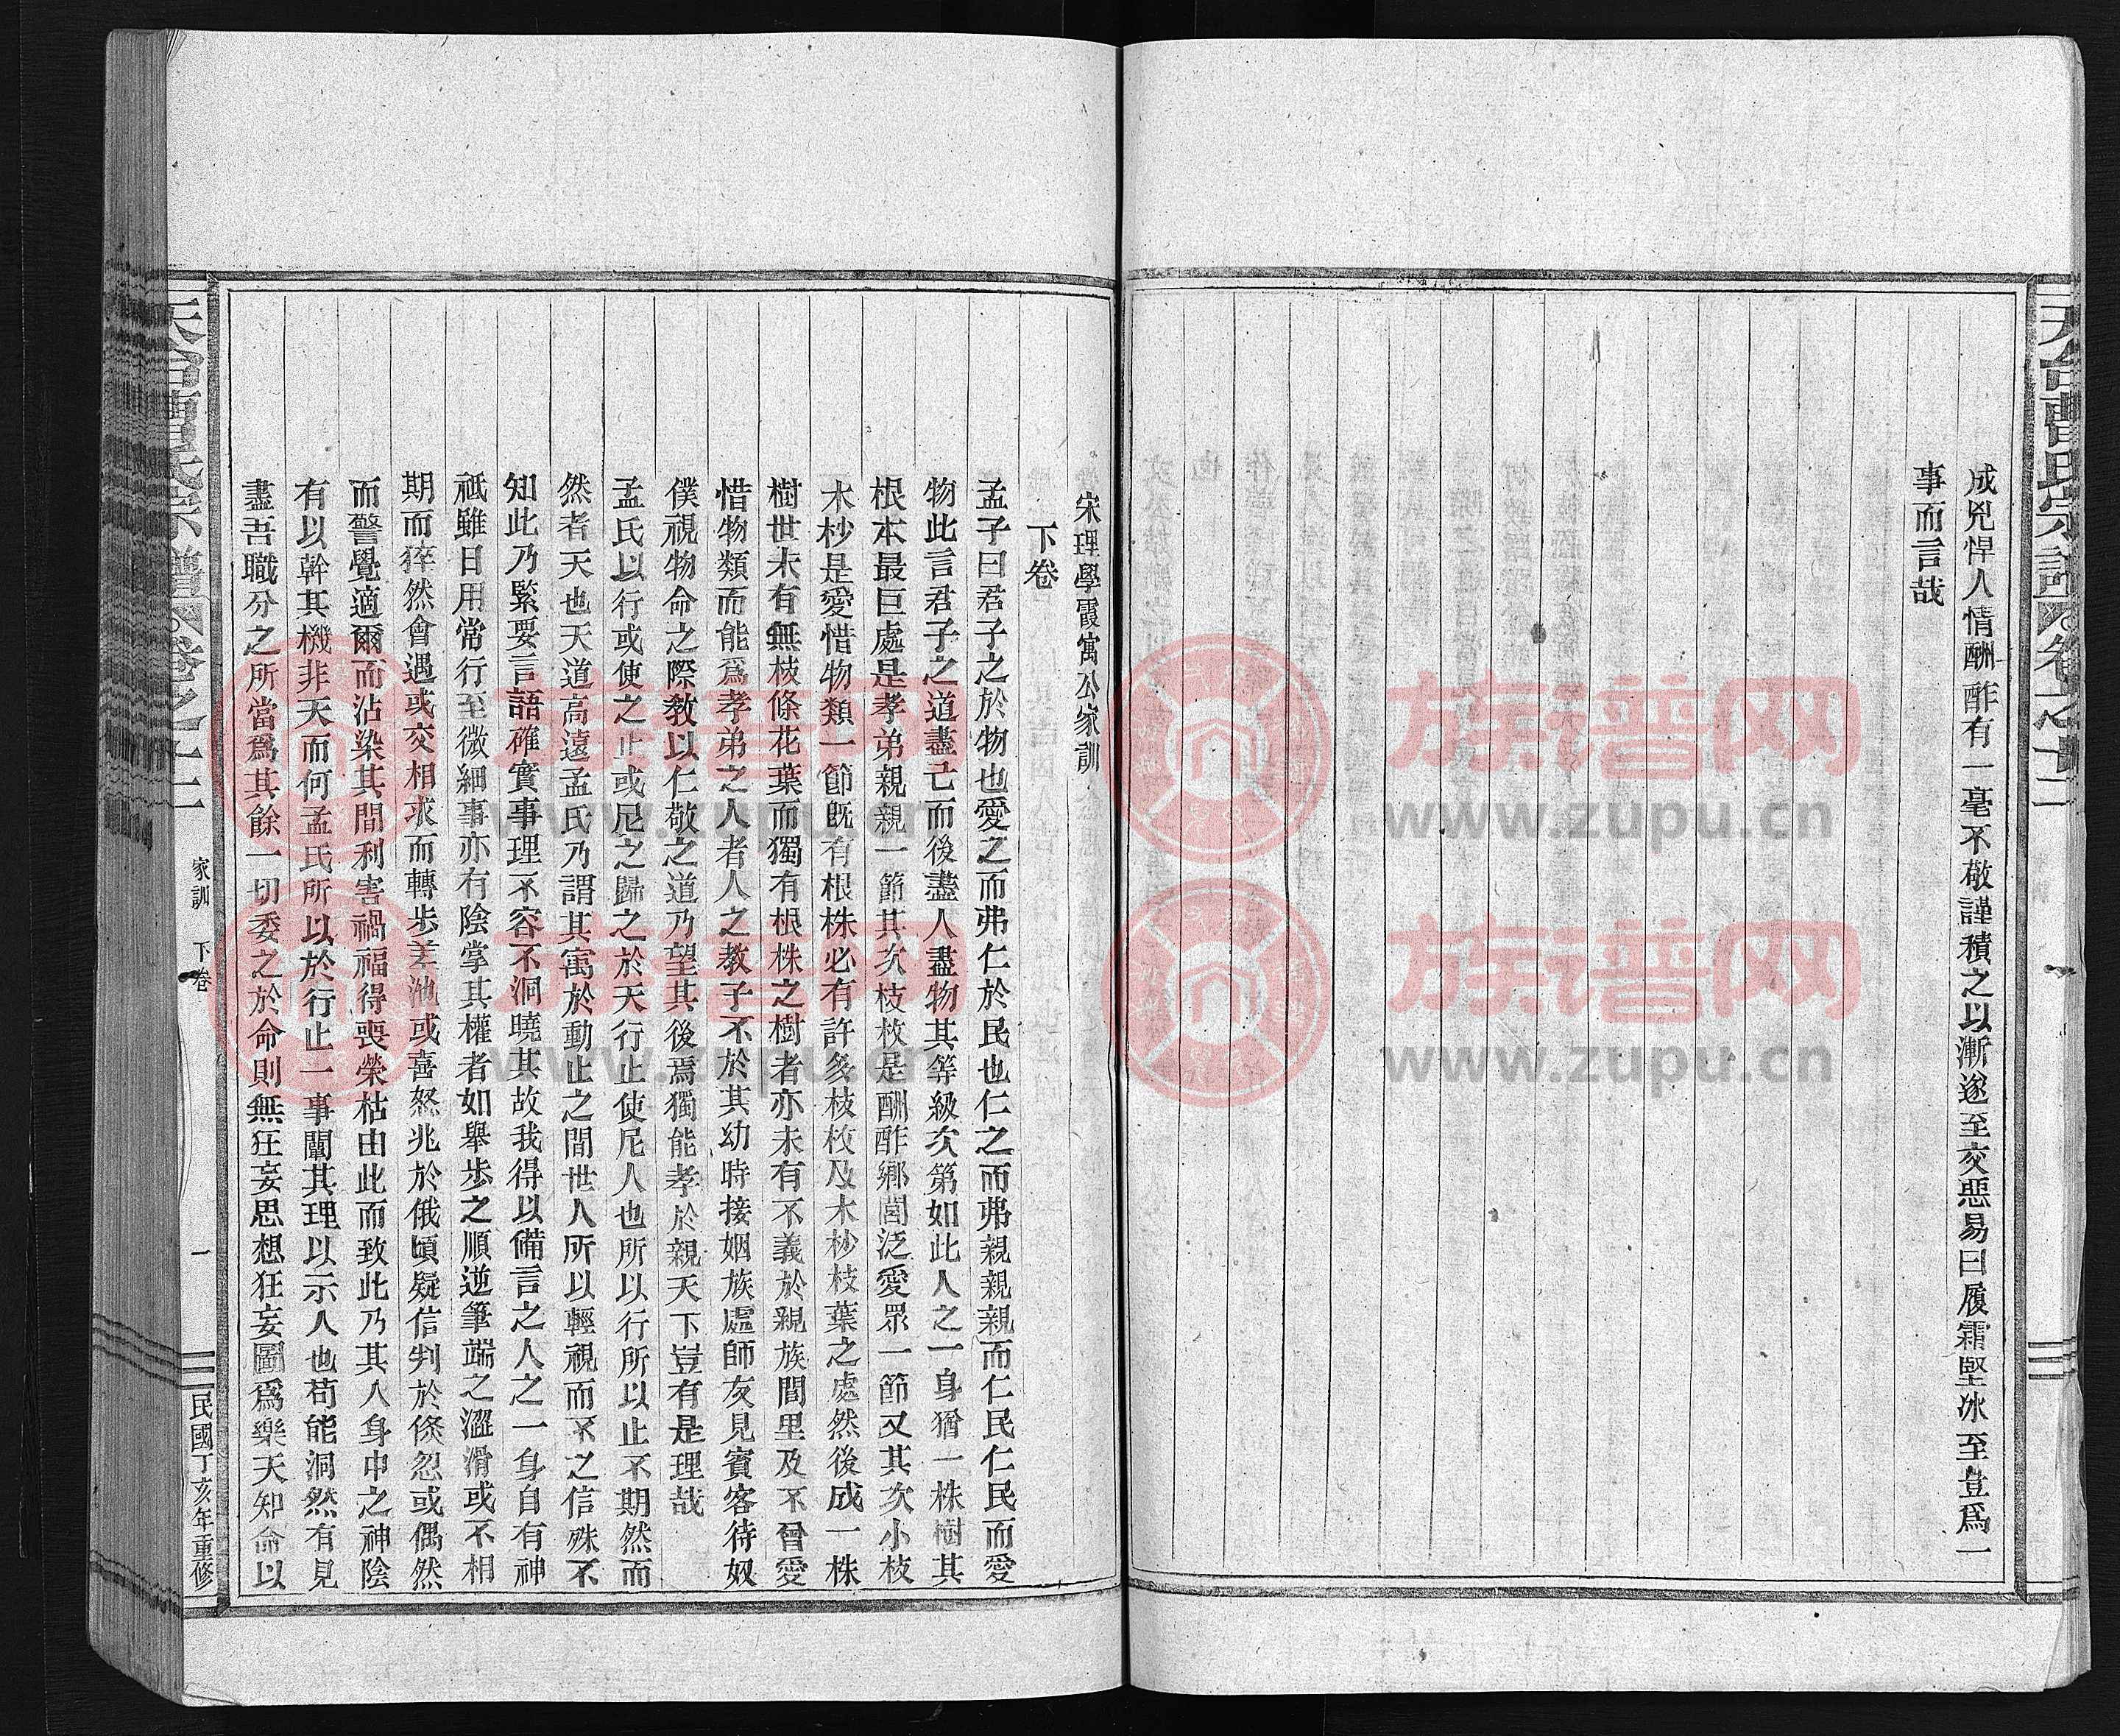 天台曹氏宗譜 卷之十二
成兇悍人情酬酢有一毫不敬謹積之以漸遂至交惡易曰履霜堅冰至豈爲一
事而言哉
宋理學霞寓公家訓
下卷
孟子曰君子之於物也愛之而弗仁於民也仁之而弗親親親而仁民仁民而愛
物此言君子之道盡己而後盡人盡物其等級次第如此人之一身猶一株樹其
根本最巨處是孝弟親親一節其次枝枚是酬酢鄉閭泛愛眾一節又其次小枝
木杪是愛惜物類一節既有根株必有許多枝枚及木杪枝葉之處然後成一株
樹世未有無枝條花葉而獨有根株之樹者亦未有不義於親族閭里及不曾愛
惜物類而能爲孝弟之人者人之教子不於其幼時接姻族處師友見賓客待奴
僕視物命之際教以仁敬之道乃望其後焉獨能孝於親天下豈有是理哉
孟氏以行或使之止或尼之歸之於天行止使尼人也所以行所以止不期然而
然者天也天道高遠孟氏乃謂其寓於動止之間世人所以輕視而不之信殊不
知此乃緊要言語確實事理不容不洞曉其故我得以備言之人之一身自有神
祇雖日用常行至微細事亦有陰掌其權者如舉步之順逆筆端之澀滑或不相
期而猝然會遇或交相求而轉步差池或喜怒兆於俄頃疑信判於倏忽或偶然
而警覺適爾而沾染其間利害禍福得喪榮枯由此而致此乃其人身中之神陰
有以幹其機非天而何孟氏所以於行止一事闡其理以示人也苟能洞然有見
盡吾職分之所當爲其餘一切委之於命則無狂妄思想狂妄圖爲樂天知命以
天台曹氏宗譜 卷之十二
家訓 下卷
一
民國丁亥年重修
族谱网
www.zupu.cn
族谱网
www.zupu.cn
族谱网
www.zupu.cn
族谱网
www.zupu.cn